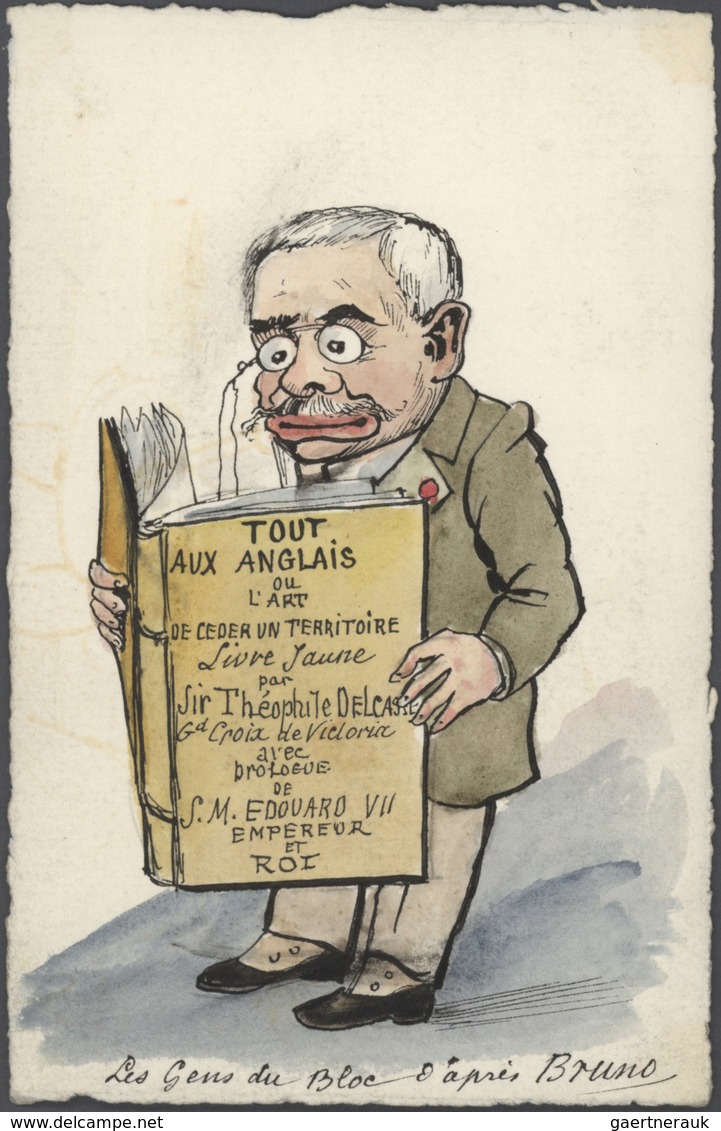 TOUT
AUX ANGLAIS
OU
L'ART
DE CEDER UN TERRITOIRE
Livre Jaune
par
Sir Théophile DELCASSE
Gd Croix de Victoria
avec
prologue
DE
S. M. EDOUARD VII
EMPEREUR
ET
ROI
Les Gens du Bloc d'après Bruno
gaertnerauk